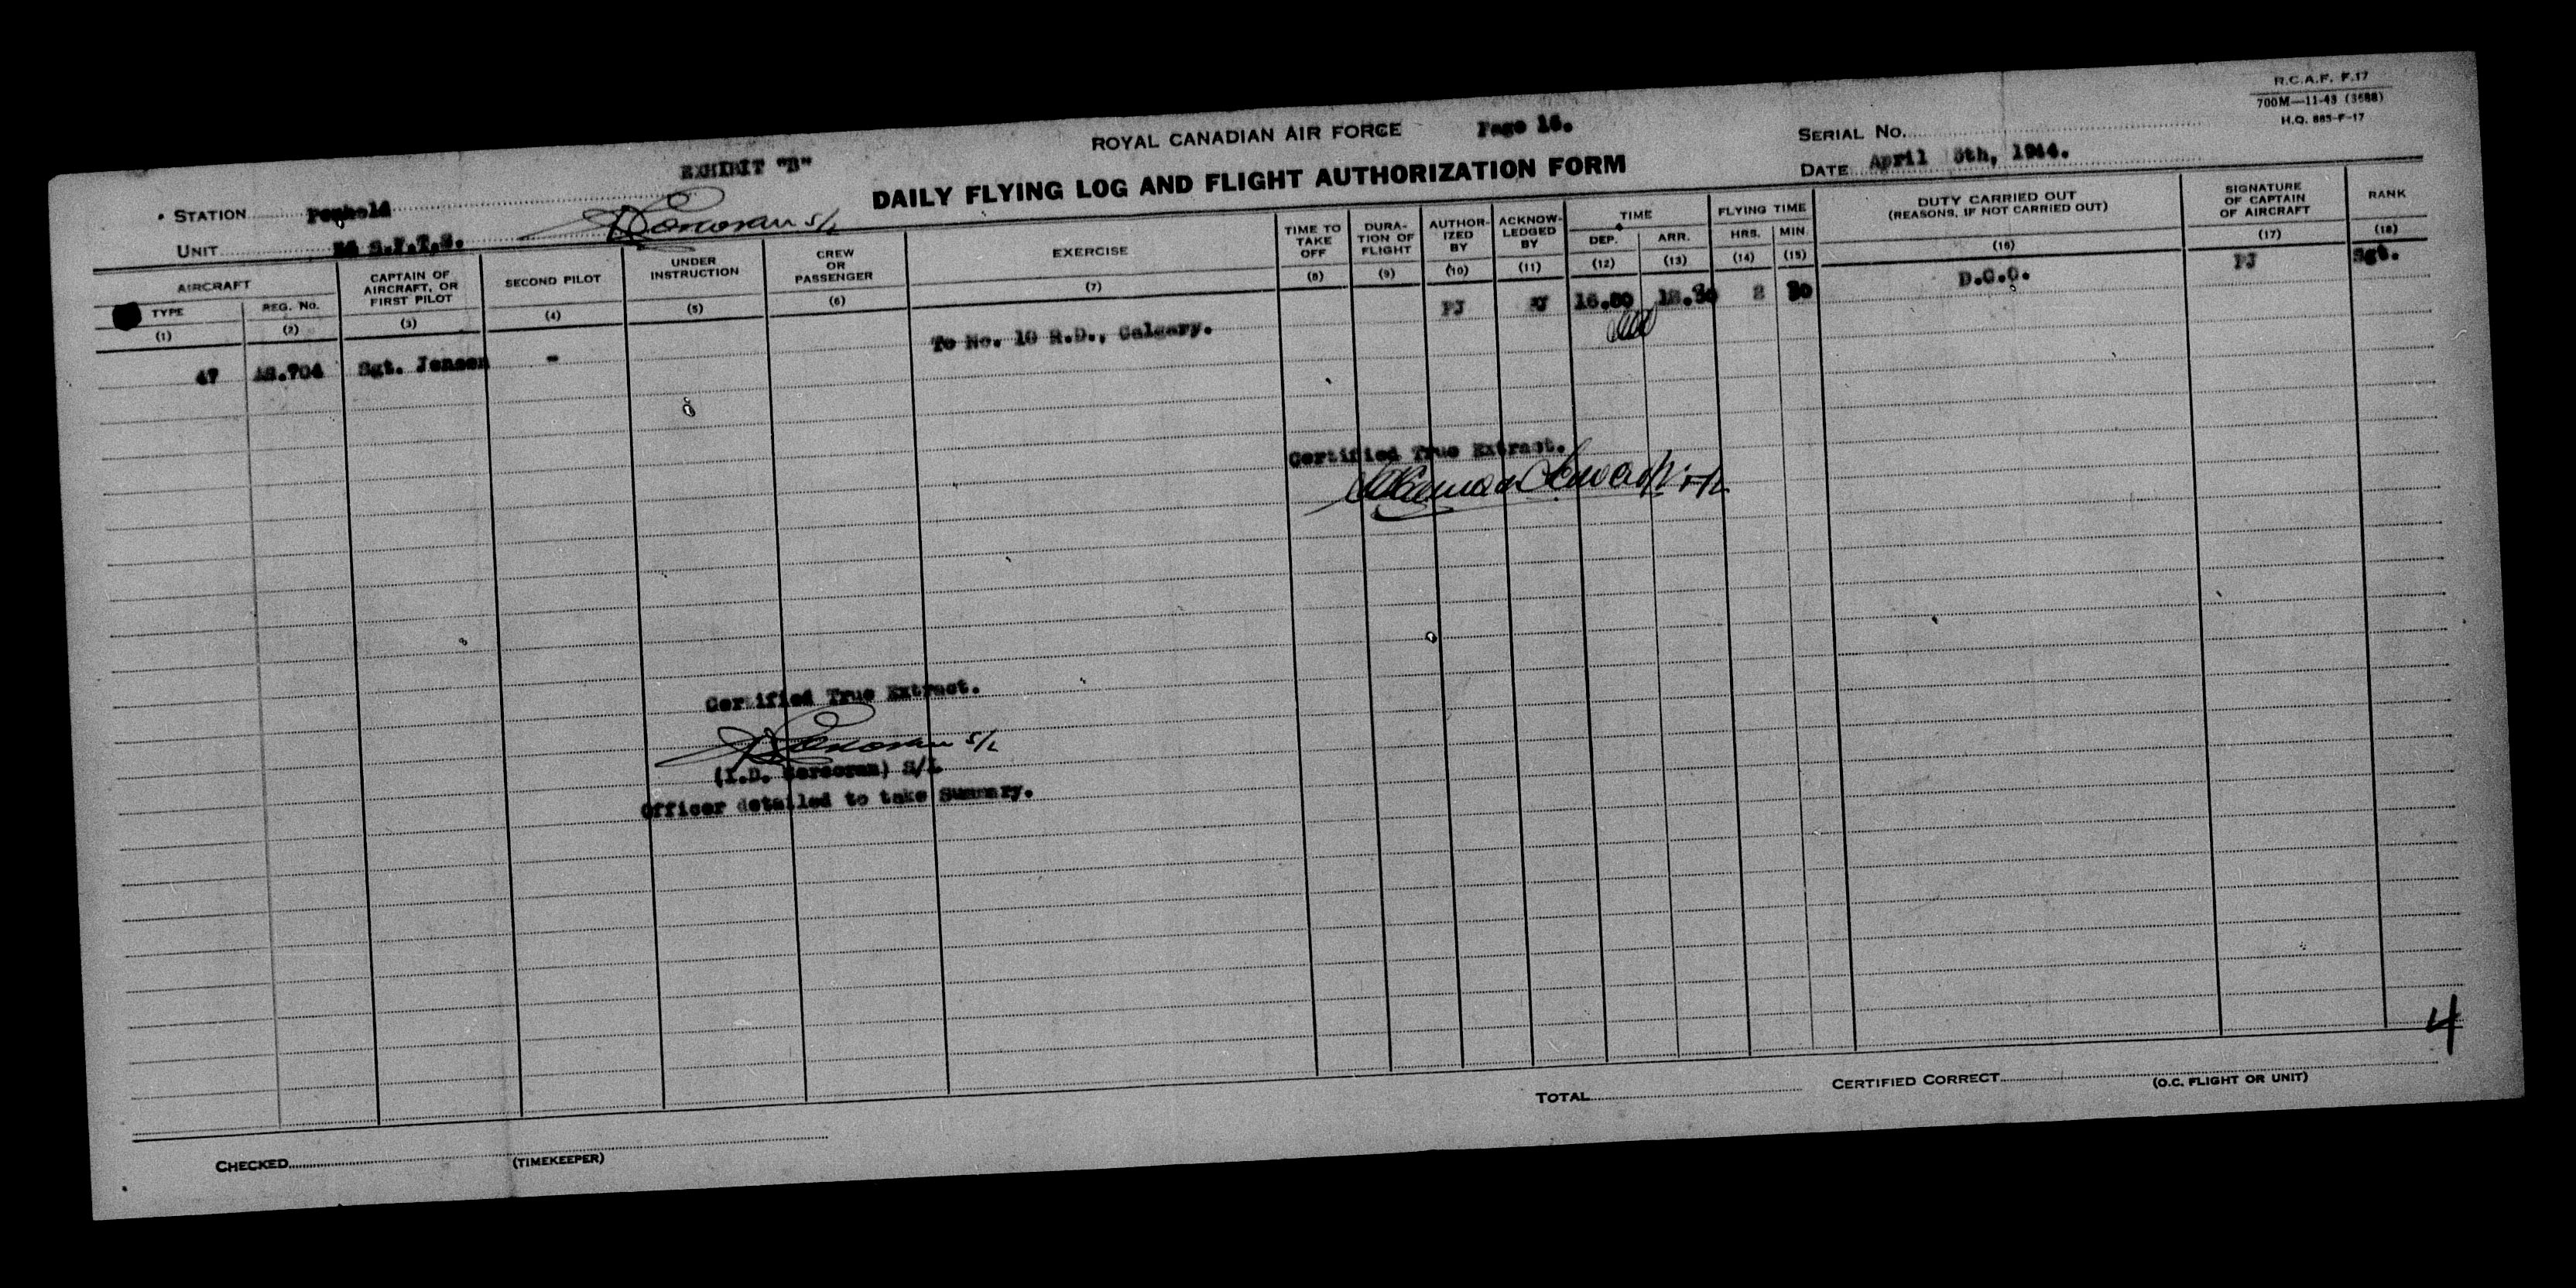 R.C.A.F. F.17
700M—11-43 (3588)
H.Q. 885-F-17
ROYAL CANADIAN AIR FORCE Page 16.
SERIAL No.
EXHIBIT "B"
DAILY FLYING LOG AND FLIGHT AUTHORIZATION FORM
DATE April 5th, 1944.
STATION Penhold
UNIT S.F.T.S. S/L
AIRCRAFT
TYPE (1)
REG. No. (2)
CAPTAIN OF AIRCRAFT, OR FIRST PILOT (3)
SECOND PILOT (4)
UNDER INSTRUCTION (5)
CREW OR PASSENGER (6)
EXERCISE (7)
TIME TO TAKE OFF (8)
DURA- TION OF FLIGHT (9)
AUTHOR- IZED BY (10)
ACKNOW- LEDGED BY (11)
TIME
DEP. (12)
ARR. (13)
FLYING TIME
HRS. (14)
MIN. (15)
DUTY CARRIED OUT (REASONS, IF NOT CARRIED OUT) (16)
SIGNATURE OF CAPTAIN OF AIRCRAFT (17)
RANK (18)
47 AS.704 Sgt. Jensen - To No. 10 R.D., Calgary. PJ 2 30 D.C.O. PJ Sgt.
Certified True Extract.
F/L
Certified True Extract.
S/L
(I.D. Corcoran) S/L
Officer detailed to take Summary.
4
TOTAL
CERTIFIED CORRECT
(O.C. FLIGHT OR UNIT)
CHECKED
(TIMEKEEPER)